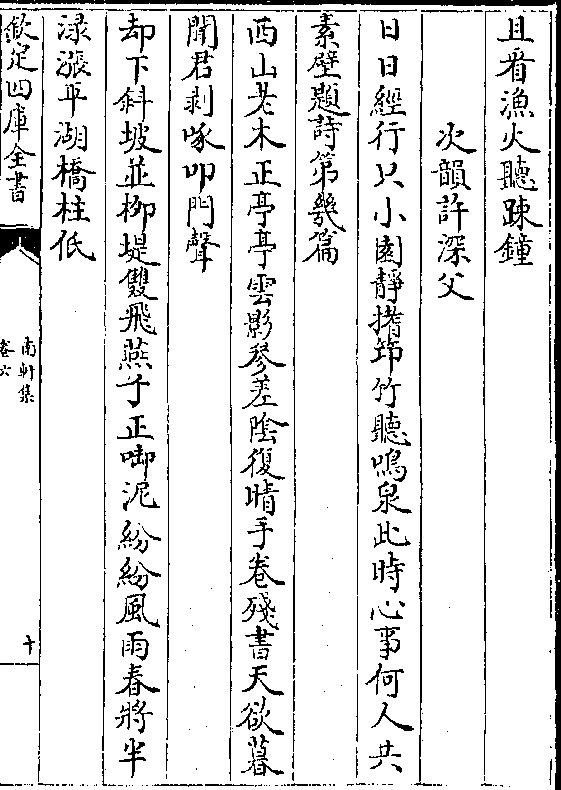 且看漁火聽踈鐘
次韻許深父
日日經行只小園靜搘笻竹聽鳴泉此時心事何人共
素壁題詩第幾篇
西山老木正亭亭雲影參差陰復晴手卷殘書天欲暮
聞君剥啄叩門聲
却下斜坡並栁堤雙飛燕子正啣泥紛紛風雨春將半
渌漲平湖橋柱低
欽定四庫全書
南軒集
卷六
十